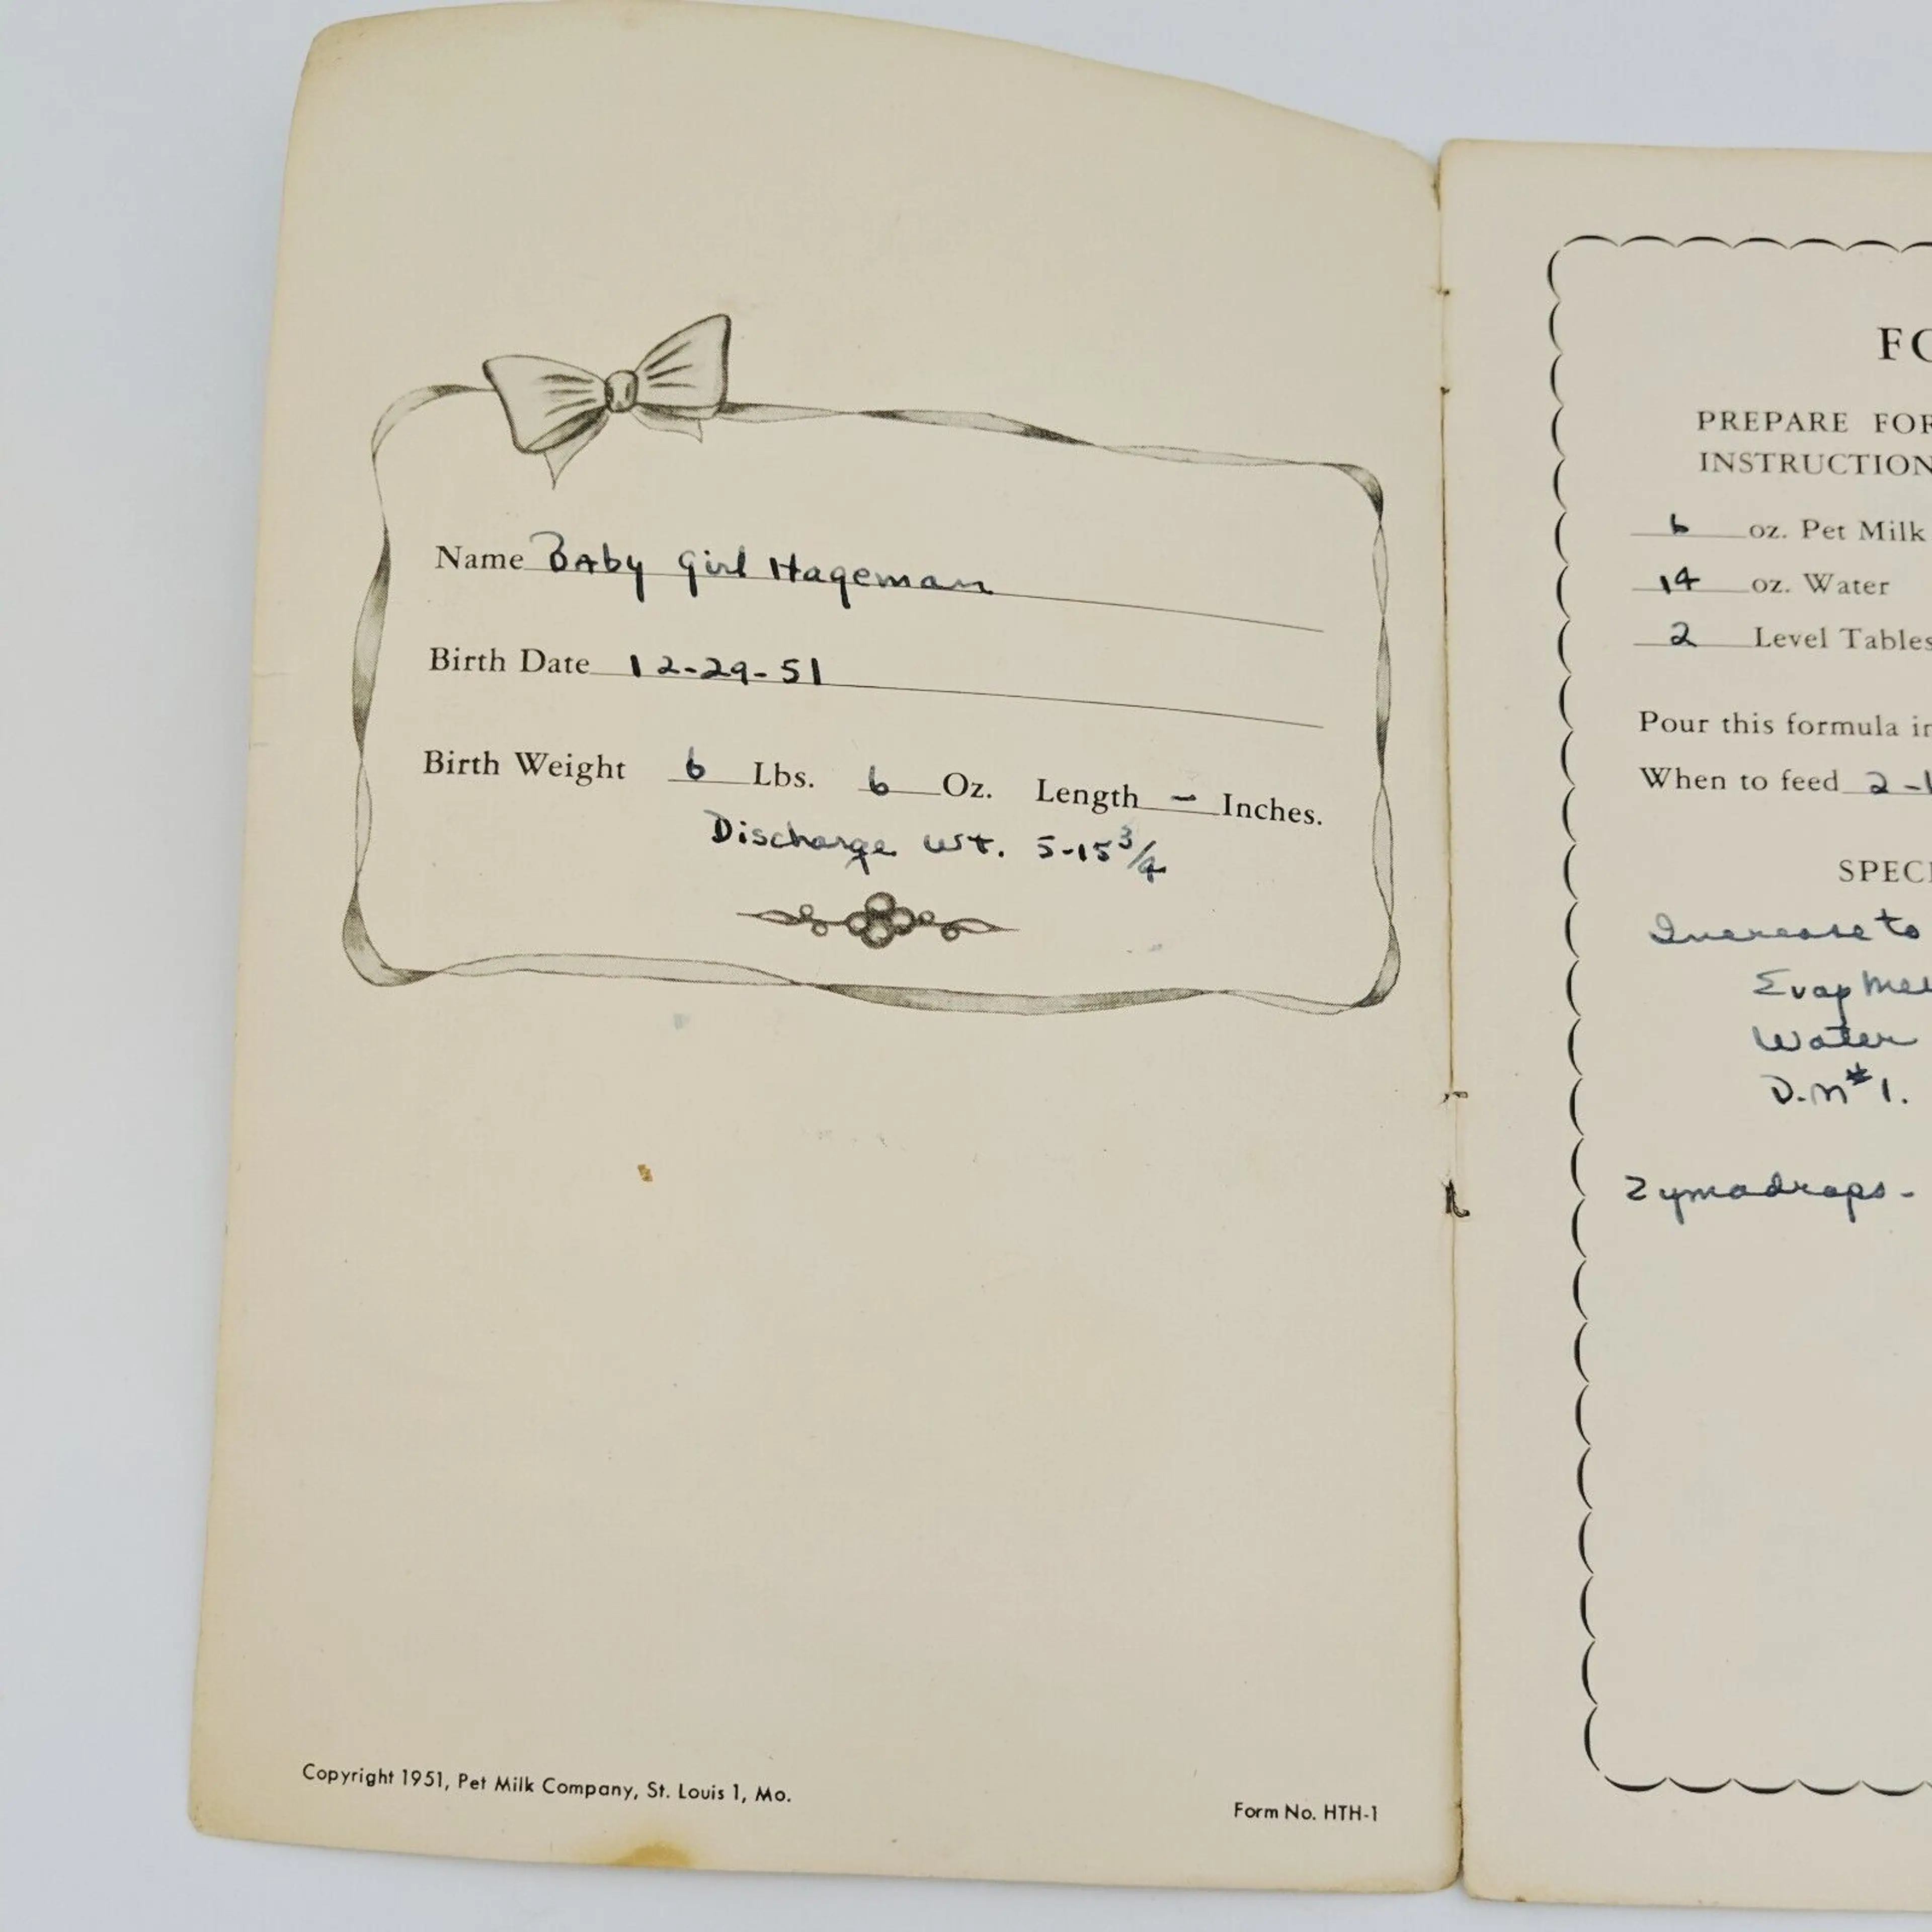 Name Baby Girl Hageman
Birth Date 12-29-51
Birth Weight 6 Lbs. 6 Oz. Length - Inches.
Discharge wt. 5-15 3/4
Copyright 1951, Pet Milk Company, St. Louis 1, Mo.
Form No. HTH-1
FO
PREPARE FOR
INSTRUCTION
6 oz. Pet Milk
14 oz. Water
2 Level Tables
Pour this formula in
When to feed 2-1
SPECI
Increase to
Evap
Water
D.M #1.
Zymadrops-